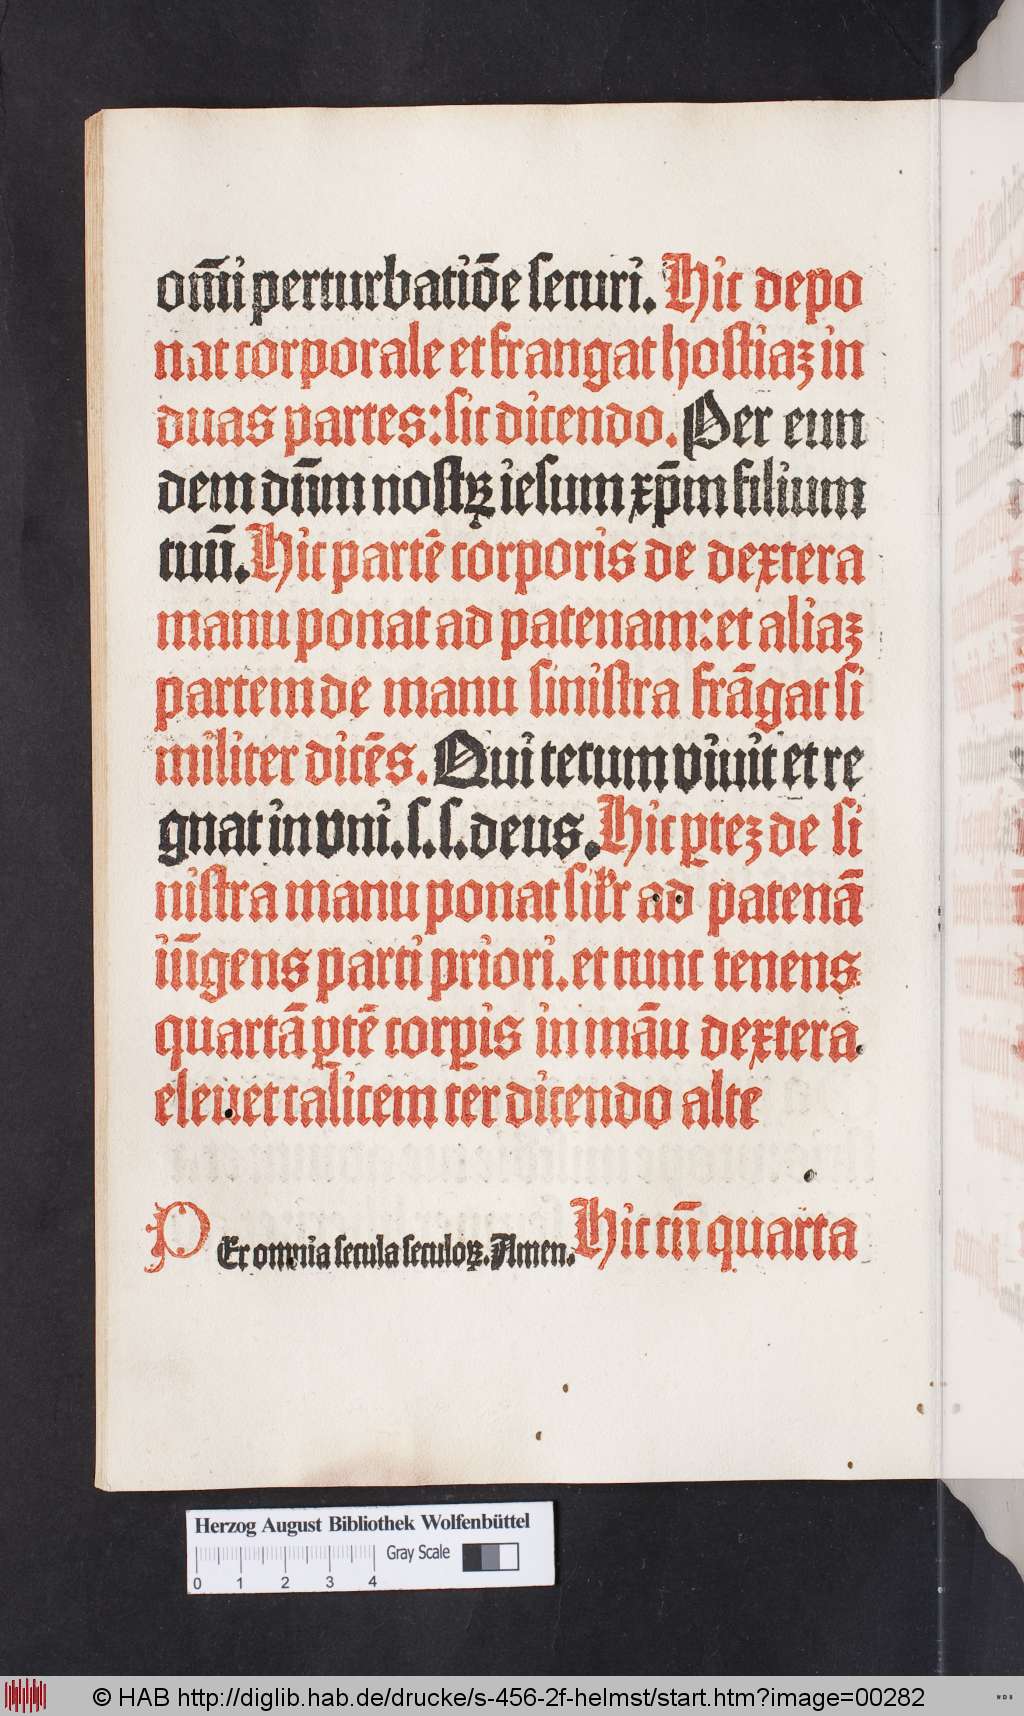 om̄i perturbatiōe securi. Hic depo
nat corporale et frangat hostiaꝫ in
duas partes: sic dicendo. Per eun
dem dn̄m nostrꝝ iesum xp̄m filium
tuū. Hic partē corporis de dextera
manu ponat ad patenam: et aliaꝫ
partem de manu sinistra frāgat si
militer dicēs. Qui tecum viuit et re
gnat in vni. s. s. deus. Hic ꝑteꝫ de si
nistra manu ponat silr ad patenā
iūgens parti priori. et tunc tenens
quartā ꝑtē corꝑis in māu dextera
eleuet calicem ter dicendo alte
PEr omnia secula seculoꝝ. Amen. Hic cū quarta
Herzog August Bibliothek Wolfenbüttel
Gray Scale
0 1 2 3 4
© HAB http://diglib.hab.de/drucke/s-456-2f-helmst/start.htm?image=00282